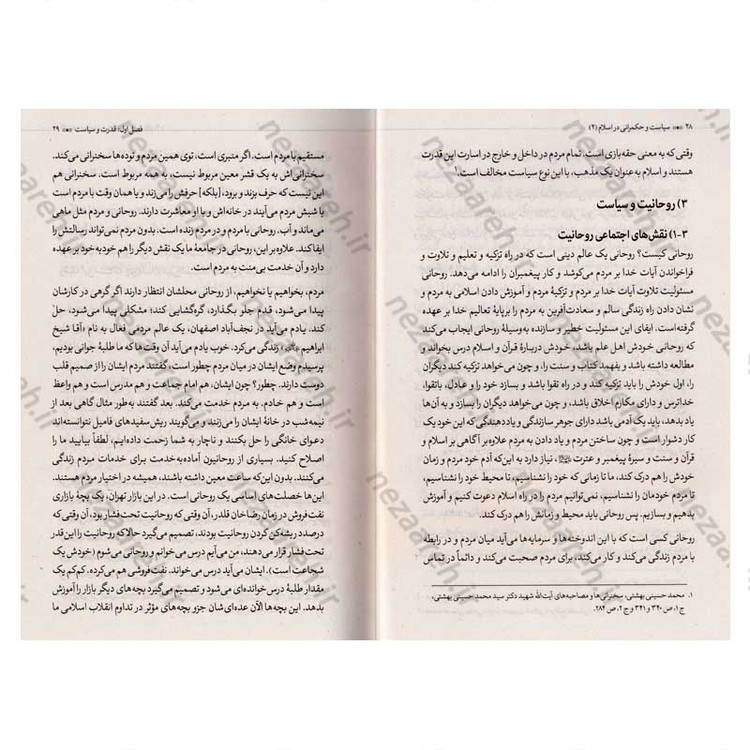 ۲۸ «•» سیاست و حکمرانی در اسلام (۲)
وقتی که به معنی حقه‌بازی است. تمام مردم در داخل و خارج در اسارت این قدرت
هستند و اسلام به عنوان یک مذهب، با این نوع سیاست مخالف است.۱
۳) روحانیت و سیاست
۳-۱) نقش‌های اجتماعی روحانیت
روحانی کیست؟ روحانی یک عالم دینی است که در راه تزکیه و تعلیم و تلاوت و
فراخواندن آیات خدا بر مردم می‌کوشد و کار پیغمبران را ادامه می‌دهد. روحانی
مسئولیت تلاوت آیات خدا بر مردم و تزکیهٔ مردم و آموزش دادن اسلامی به مردم و
نشان دادن راه زندگی سالم و سعادت‌آفرین به مردم را برپایهٔ تعالیم خدا بر عهده
گرفته‌است. ایفای این مسئولیت خطیر و سازنده به‌وسیلهٔ روحانی ایجاب می‌کند
که روحانی خودش اهل علم باشد، خودش دربارهٔ قرآن و اسلام درس بخواند و
مطالعه داشته باشد و بفهمد کتاب و سنت را، و چون می‌خواهد تزکیه کند دیگران
را، اول خودش را باید تزکیه کند و در راه تقوا باشد و بسازد خود را و عادل، باتقوا،
خداترس و دارای مکارم اخلاق باشد، و چون می‌خواهد دیگران را بسازد و به آن‌ها
یاد بدهد، باید یک آدمی باشد دارای جوهر سازندگی و یاددهندگی که این خود یک
کار دشوار است و چون ساختن مردم و یاد دادن به مردم علاوه‌بر آگاهی بر اسلام و
قرآن و سنت و سیرهٔ پیغمبر و عترت ، نیاز دارد به‌این‌که آدم خود مردم و زمان
خود را درک کند، ما تا زمانی که خود را نشناسیم، تا محیط خود را نشناسیم،
تا مردم خودمان را نشناسیم، نمی‌توانیم مردم را در راه اسلام دعوت کنیم و آموزش
بدهیم و بسازیم. پس روحانی باید محیط و زمانش را هم درک کند.
روحانی کسی است که با این اندوخته‌ها و سرمایه‌ها می‌آید میان مردم و در رابطه
با مردم زندگی می‌کند و کار می‌کند، برای مردم صحبت می‌کند و دائماً در تماس
۱. محمد حسینی بهشتی، سخنرانی‌ها و مصاحبه‌های آیت‌الله شهید دکتر سید محمد حسینی بهشتی،
ج ۱، ص ۳۴۰ و ۳۴۱ و ج ۱، ص ۲۸۴.
فصل اول: قدرت و سیاست «•» ۲۹
مستقیم با مردم است. اگر منبری است، توی همین مردم و توده‌ها سخنرانی می‌کند.
سخنرانی‌اش به یک قشر معین مربوط نیست، به همه مربوط است. سخنرانی هم
این نیست که حرف بزند و برود، [بلکه] حرفش را می‌زند و با همان وقت با مردم است
یا شبش مردم می‌آیند در خانه‌اش و با او معاشرت دارند. روحانی و مردم مثل ماهی
می‌ماند و آب. روحانی با مردم و در مردم زنده است. بدون مردم نمی‌تواند رسالتش را
ایفا کند. علاوه‌بر این، روحانی در جامعهٔ ما یک نقش دیگر را هم خودبه‌خود بر عهده
دارد و آن خدمت بی‌منت به مردم است.
مردم، بخواهیم یا نخواهیم، از روحانی محلشان انتظار دارند اگر گرهی در کارشان
پیدا می‌شود، قدم جلو بگذارد، گره‌گشایی کند؛ مشکلی پیدا می‌شود، حل
کند. یادم می‌آید در نجف‌آباد اصفهان، یک عالم مردمی فعال به نام «آقا شیخ
ابراهیم » زندگی می‌کرد. خوب یادم می‌آید آن وقت‌ها که ما طلبهٔ جوانی بودیم،
پرسیدم وضع ایشان در میان مردم چطور است، گفتند مردم ایشان را از صمیم قلب
دوست دارند. چطور؟ چون ایشان، هم امام جماعت و هم مدرس است و هم واعظ
است و هم خادم. به مردم خدمت می‌کند. بعد گفتند به‌طور مثال گاهی بعد از
نیمه‌شب در خانهٔ ایشان را می‌زنند و می‌گویند ریش‌سفیدهای فامیل نتوانسته‌اند
دعوای خانگی را حل بکنند و ناچار به شما زحمت داده‌ایم، لطفاً بیایید ما را
اصلاح کنید. بسیاری از روحانیون آماده‌به‌خدمت برای خدمات مردم زندگی
می‌کنند. بدون این‌که ساعت معین داشته باشند، همیشه در اختیار مردم هستند.
این‌ها خصلت‌های اساسی یک روحانی است. در این بازار تهران، یک بچهٔ بازاری
نفت‌فروش در زمان رضاخان قلدر، آن وقتی که روحانیت تحت‌فشار بود، آن وقتی که
درصدد ریشه‌کن کردن روحانیت بودند، تصمیم می‌گیرد حالا که روحانیت را این‌قدر
تحت‌فشار قرار می‌دهند، من می‌آیم درس می‌خوانم و روحانی می‌شوم (خودش یک
شجاعت است). ایشان می‌آید درس می‌خواند. نفت‌فروشی هم می‌کرده. کم‌کم یک
مقدار طلبهٔ درس خوانده‌ای می‌شود و تصمیم می‌گیرد بچه‌های دیگر بازار را آموزش
بدهد. این بچه‌ها الآن عده‌ای‌شان جزو بچه‌های مؤثر در تداوم انقلاب اسلامی ما
nezaareh.ir